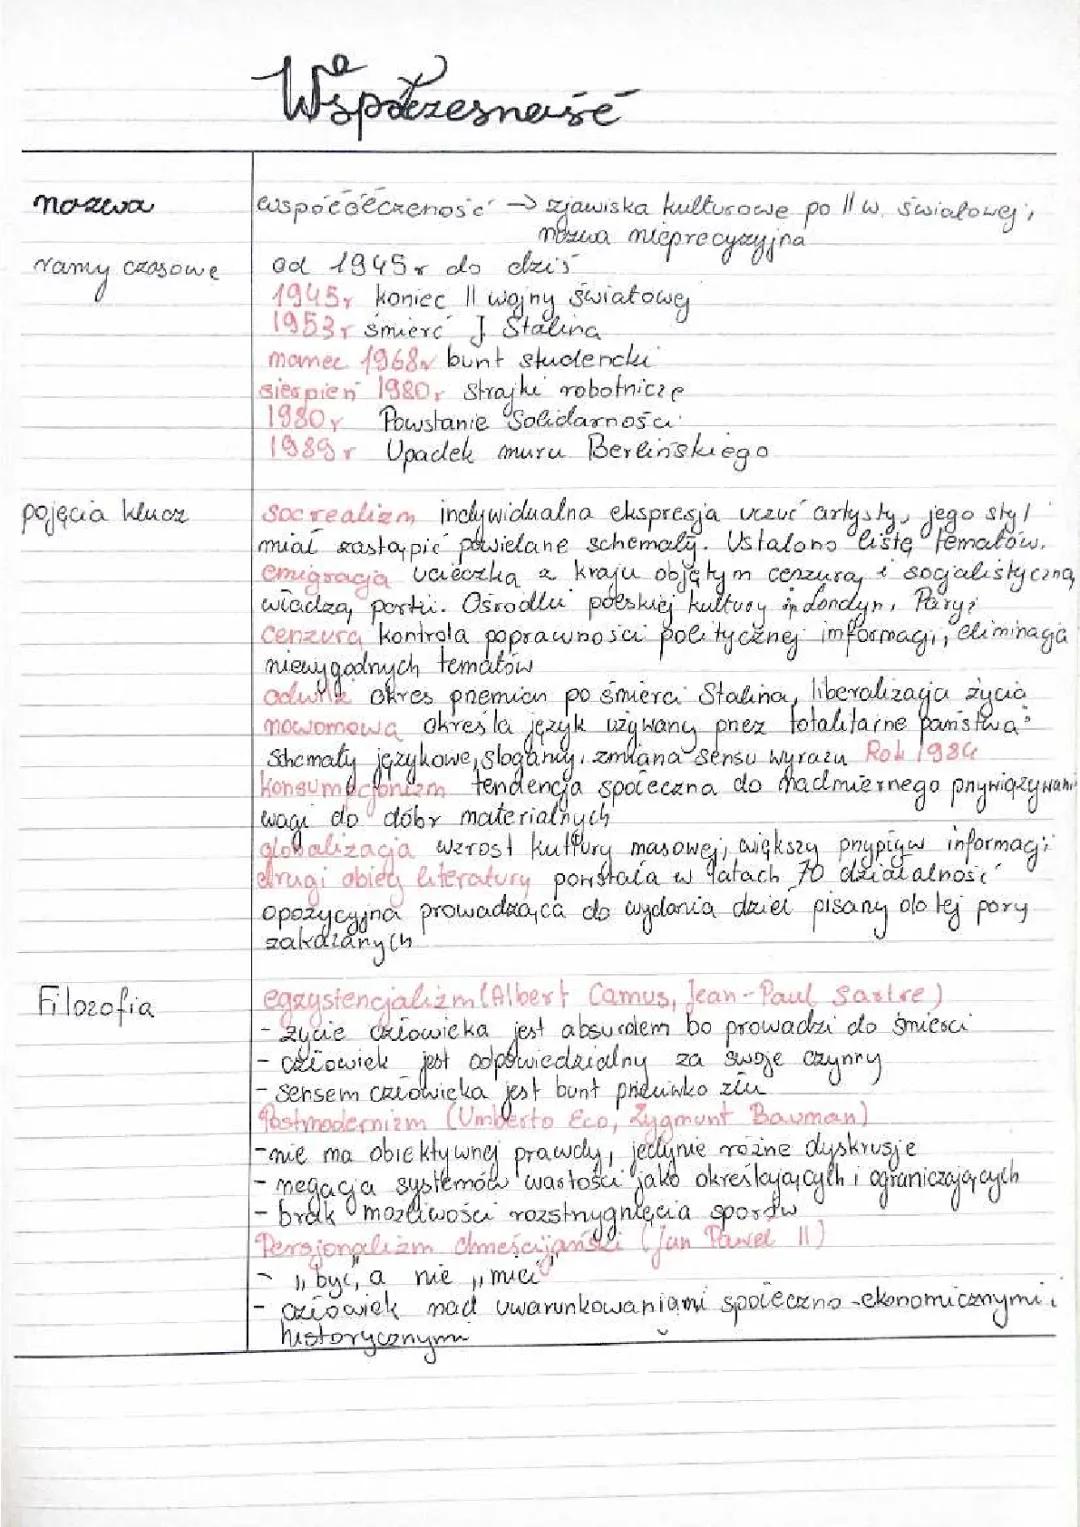 Współczesność
nazwa współcześność → zjawiska kulturowe po II w. światowej,
nazwa nieprecyzyjna
ramy czasowe od 1945r do dziś
1945r koniec II wojny światowej
1953r śmierć J. Stalina
marzec 1968r bunt studencki
sierpień 1980r strajki robotnicze
1980r Powstanie Solidarności
1989r Upadek muru Berlińskiego
pojęcia klucz socrealizm indywidualna ekspresja uczuć artysty, jego styl
miał zastąpić powielane schematy. Ustalono listę tematów.
emigracja ucieczka z kraju objętym cenzurą i socjalistyczną
władzą partii. Ośrodki polskiej kultury Londyn, Paryż
cenzura kontrola poprawności politycznej informacji, eliminacja
niewygodnych tematów
odwilż okres przemian po śmierci Stalina, liberalizacja życia
nowomowa określa język używany przez totalitarne państwa
schematy językowe, slogany, zmiana sensu wyrazu Rok 1984
konsumpcjonizm tendencja społeczna do nadmiernego przywiązywani
wagi do dóbr materialnych
globalizacja wzrost kultury masowej, większy przypływ informacji
drugi obieg literatury powstała w latach 70 działalność
opozycyjna prowadząca do wydania dzieł pisany do tej pory
zakazanych
Filozofia egzystencjalizm (Albert Camus, Jean-Paul Sartre)
- życie człowieka jest absurdem bo prowadzi do śmierci
- człowiek jest odpowiedzialny za swoje czynny
- sensem człowieka jest bunt przeciwko złu
Postmodernizm (Umberto Eco, Zygmunt Bauman)
- nie ma obiektywnej prawdy, jedynie różne dyskrusje
- negacja systemów wartości jako określających i ograniczających
- brak możliwości rozstrzygnięcia sporów
Persjonalizm chrześcijański (Jan Paweł II)
- „być", a nie „mieć"
- człowiek nad uwarunkowaniami społeczno-ekonomicznymi i
historycznymi